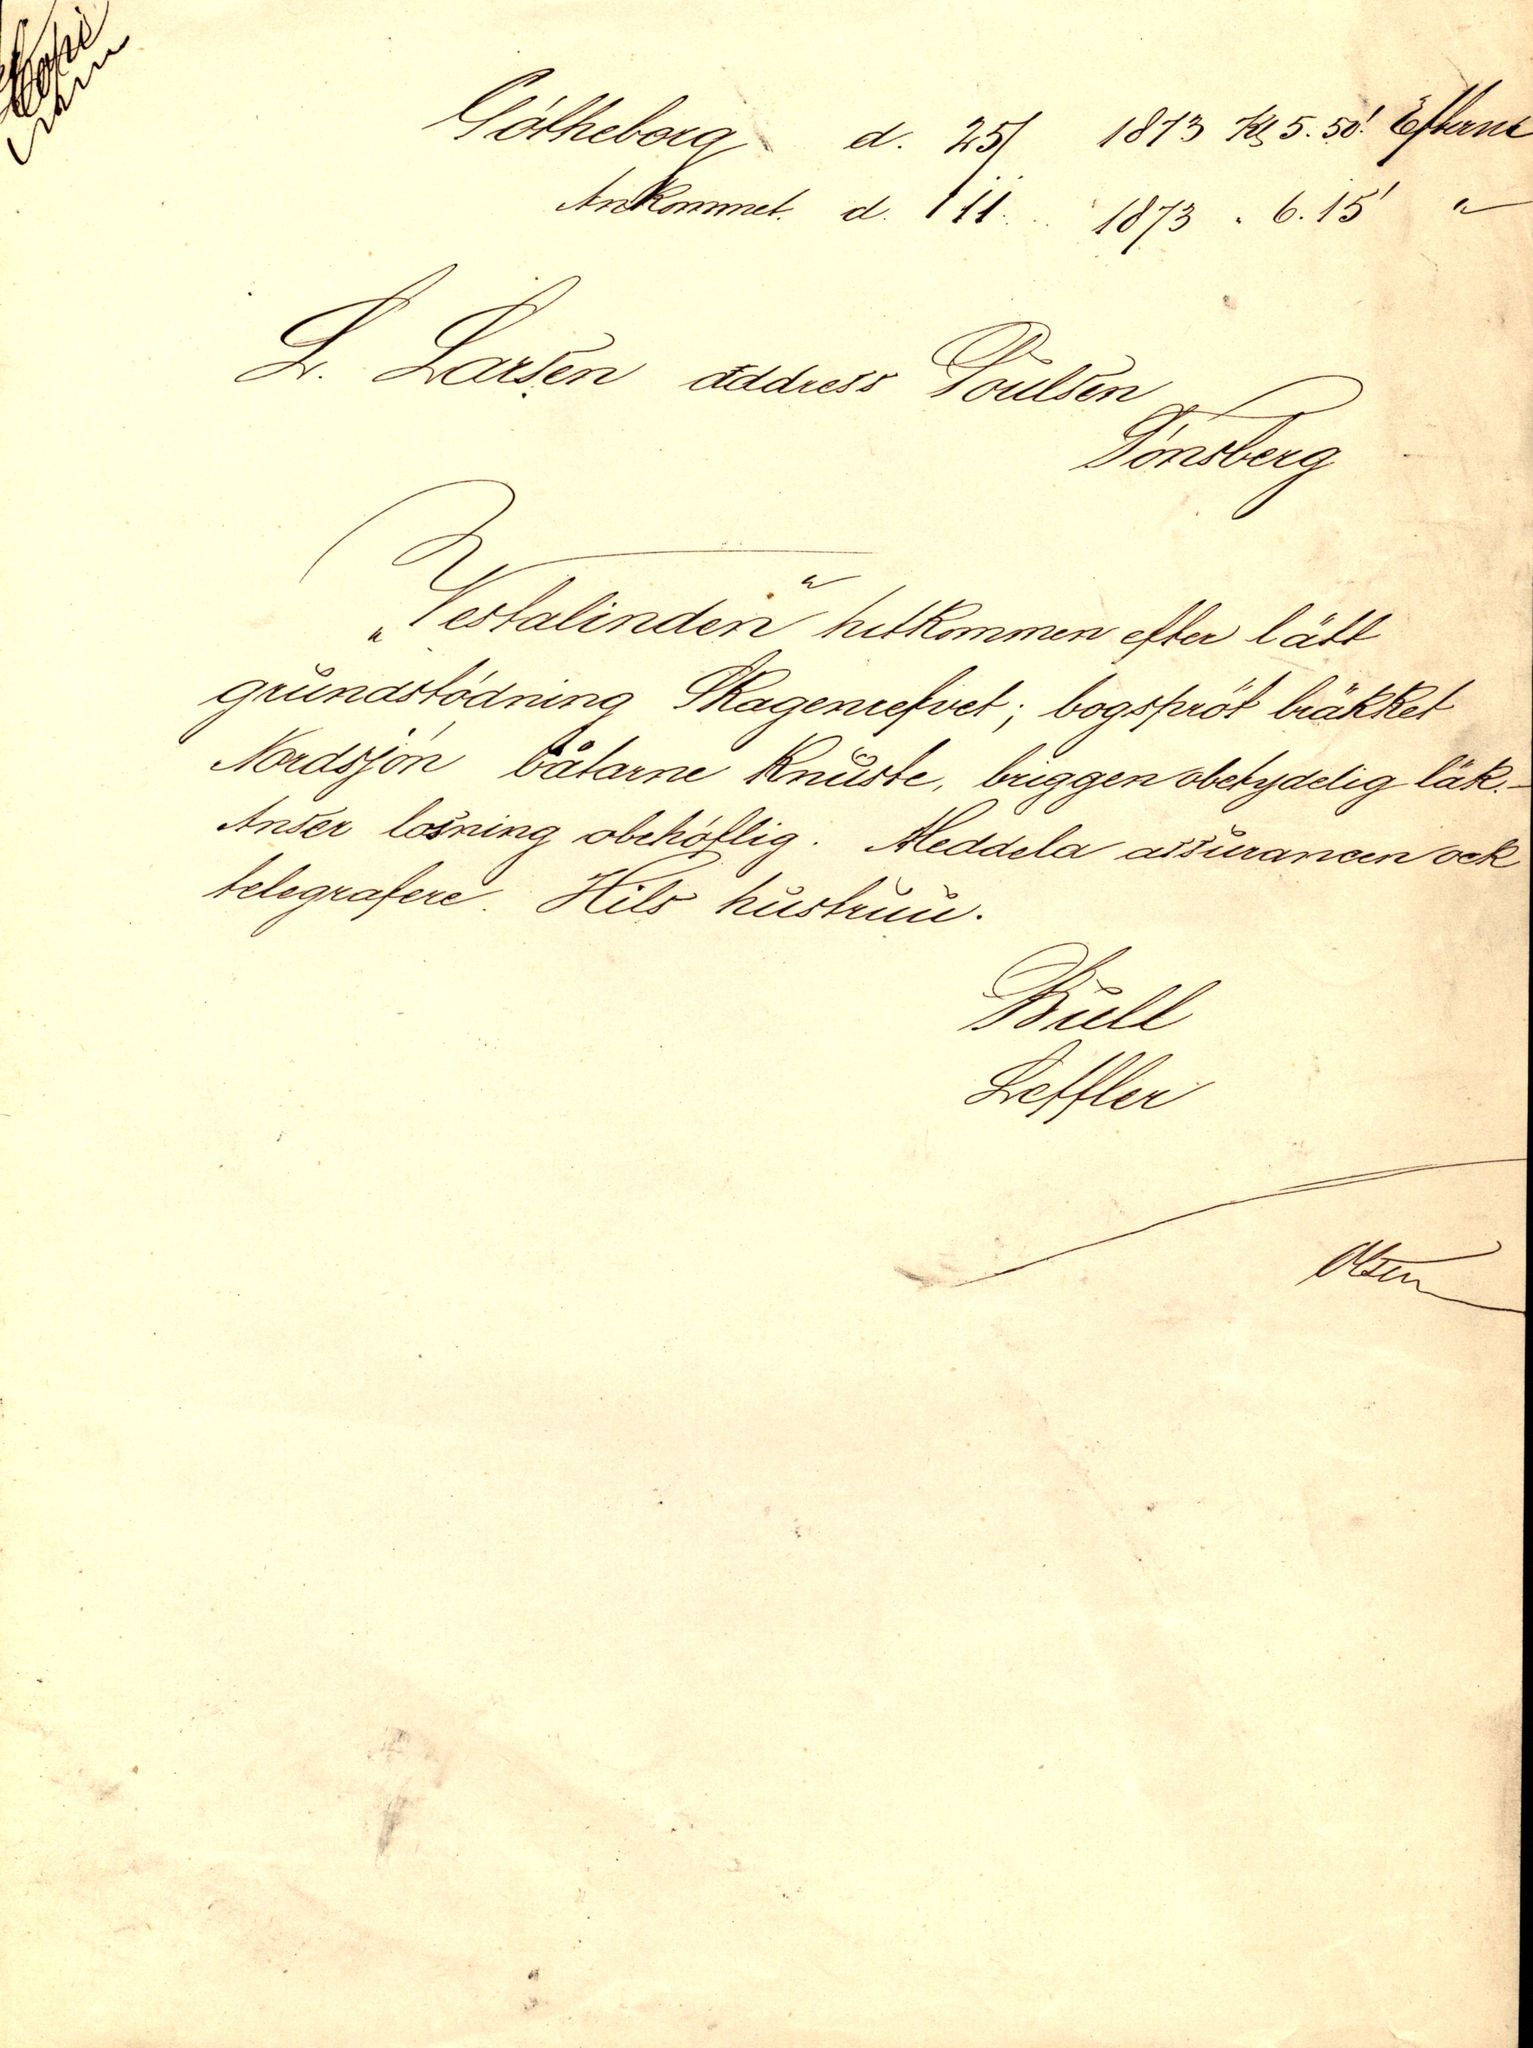 Kopi
Götheborg d. 25/11 1873 Kl 5.50' Efterm
Ankommet d. 1873 " 6.15' "
L. Larsen address Poulsen
Tönsberg
„Vestalinden" hitkommen efter lätt
grundstödning Skagenrefvet; bogspröt bräkket
Nordsjön båtarne knuste, briggen obetydelig läk.-
Anser losning obehöflig. Meddela assurancen ock
telegrafere. Hils hustruu.
Bull
Leffler
Olsen